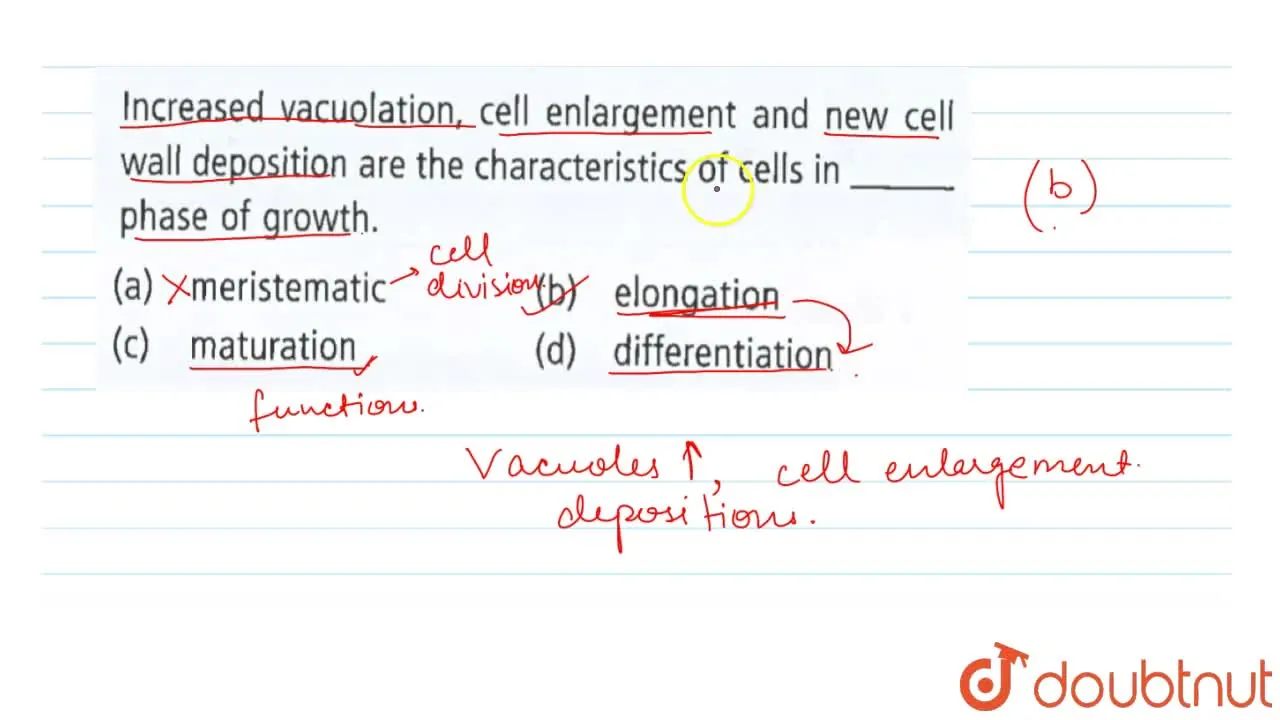 Increased vacuolation, cell enlargement and new cell
wall deposition are the characteristics of cells in ______
phase of growth.
(b)
cell
division.
(a) X meristematic → (b) elongation
(c) maturation (d) differentiation
function.
Vacuoles ↑, cell enlargement.
depositions.
doubtnut